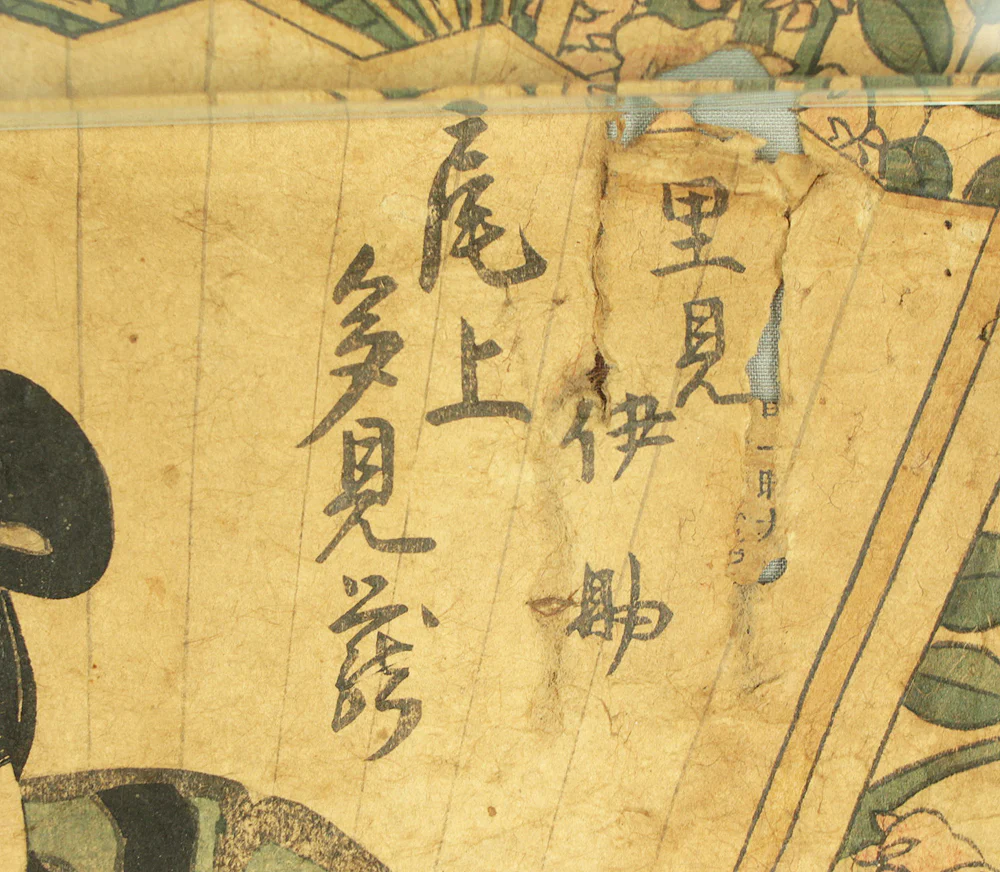 里見
伊助
尾上
多見蔵